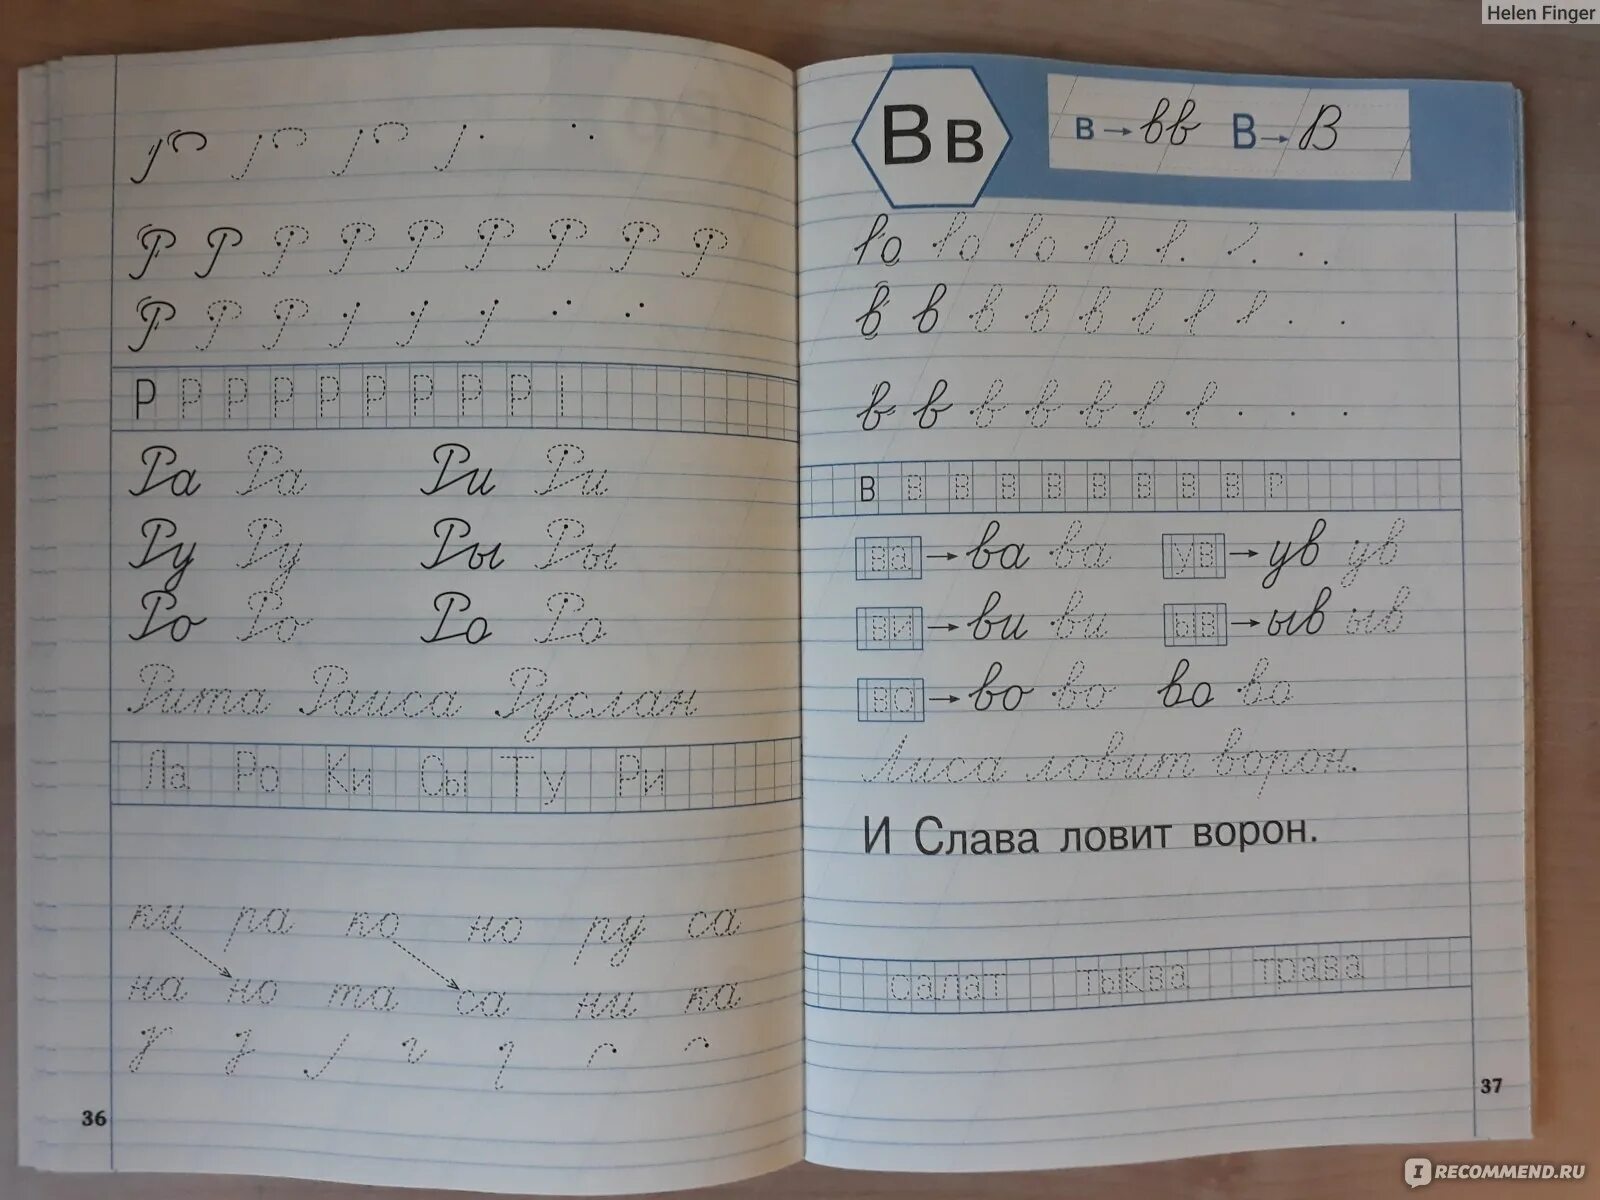 Helen Finger
Р Р Р Р Р Р Р Р Р
Р Р Р
Р Р Р Р Р Р Р Р Р
Ра Ра Ри Ри
Ру Ру Ры Ры
Ро Ро Ро Ро
Рита Раиса Руслан
Ла Ро Ки Сы Ту Ри
ки ра ко но ру са
на но та са ни ка
36
В в
в → вв В → В
в в в в в в
в в в в в
в в в в в в в в в
ва → ва ва ув → ув ув
ви → ви ви ыв → ыв ыв
во → во во во во
Лиса ловит ворон.
И Слава ловит ворон.
салат тыква трава
37
IRECOMMEND.RU